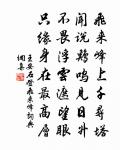 飛來峰上千尋塔
聞說鷄鳴見日升
不畏浮雲遮望眼
只緣身在最高層
王安石登飛來峰詞典
網集